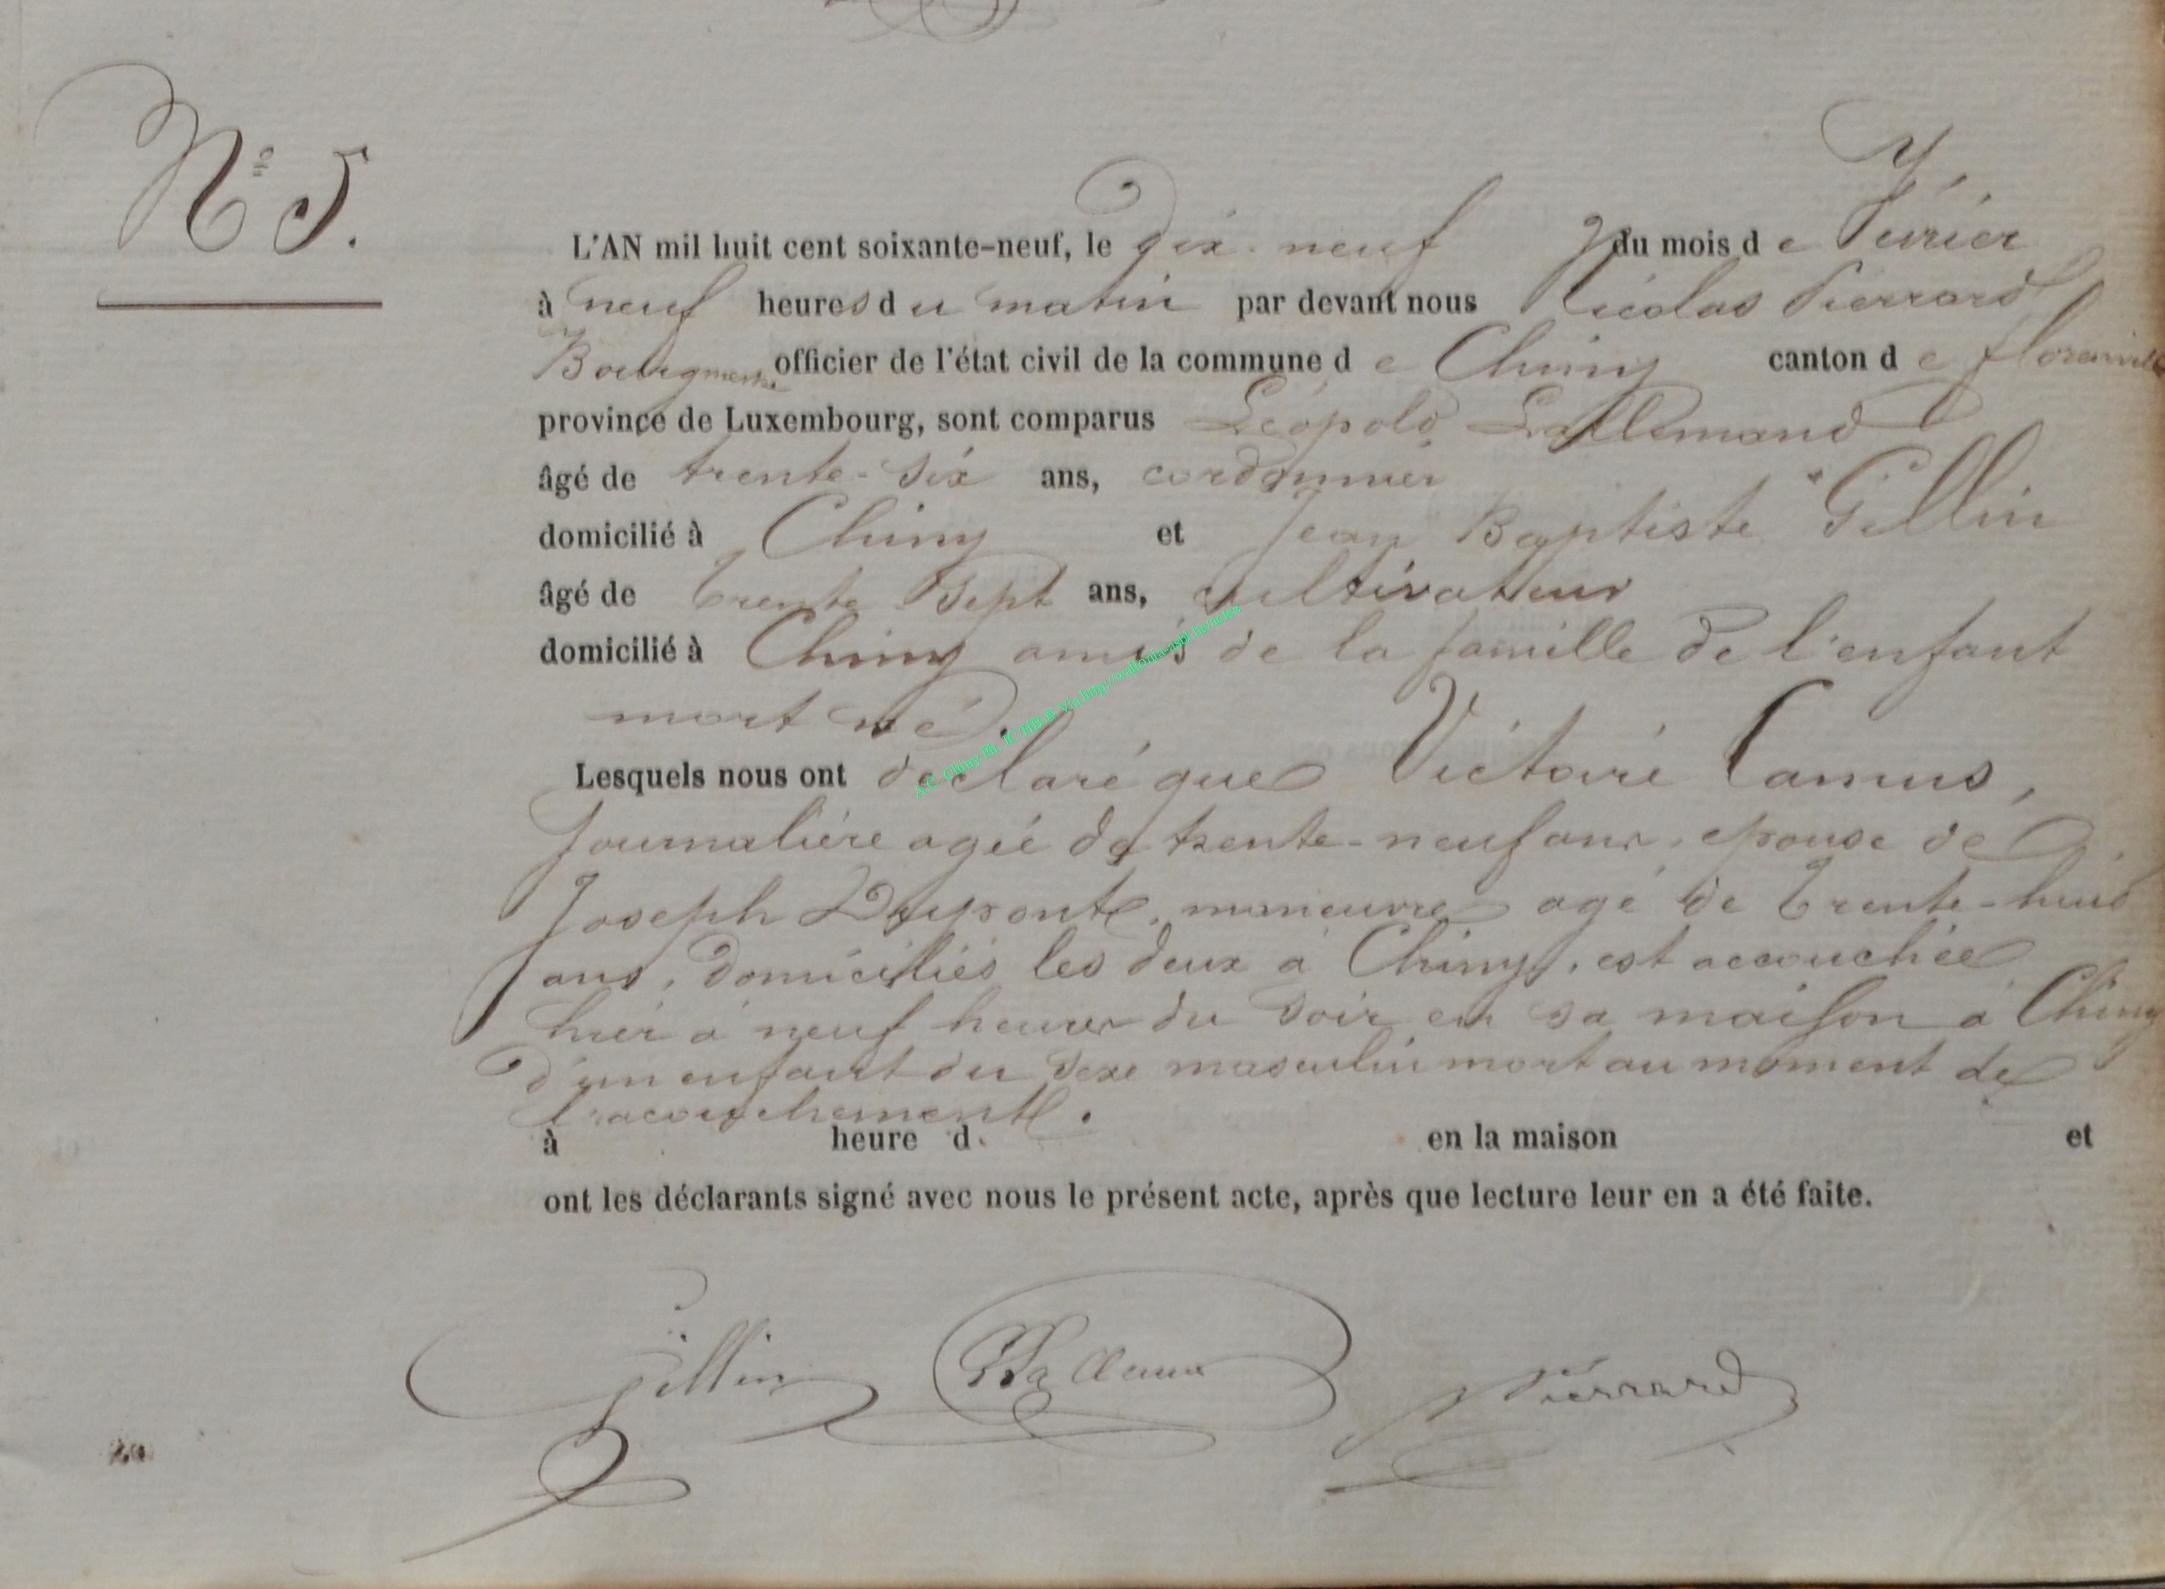 N° 5.
L'AN mil huit cent soixante-neuf, le dix-neuf du mois de Février
à neuf heures du matin par devant nous Nicolas Pierrard
Bourgmestre officier de l'état civil de la commune de Chiny canton de florenville
province de Luxembourg, sont comparus Léopold Lallemand
âgé de trente-six ans, cordonnier
domicilié à Chiny et Jean Baptiste Gillin
âgé de trente sept ans, cultivateur
domicilié à Chiny amis de la famille de l'enfant
mort né.
Lesquels nous ont déclaré que Victoire Camus,
journalière agée de trente-neuf ans, epouse de
Joseph Dupont, maneuvre agé de trente-huit
ans, domiciliés les deux à Chiny, est accouchée
hier à neuf heures du soir en sa maison à Chiny
d'un enfant du sexe masculin mort au moment de
l'acouchement.
à heure d en la maison et
ont les déclarants signé avec nous le présent acte, après que lecture leur en a été faite.
Gillin Pierrard
A.C. Chiny Ph. JC/HB.® Via http://wallonia-asbl.be/actes